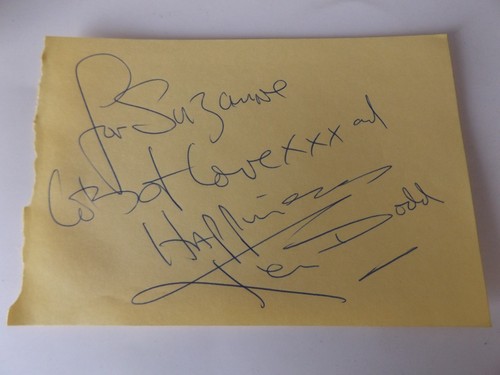 For Suzanne
Lots of Love xxx and
Happiness
Ken Dodd